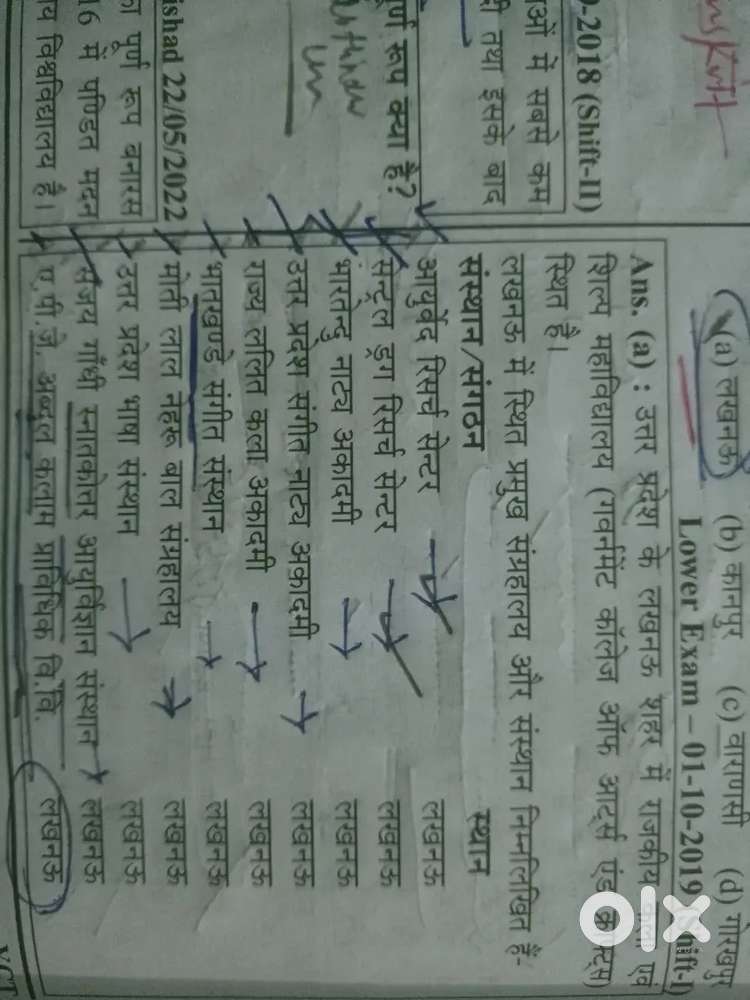 (a) लखनऊ (b) कानपुर (c) वाराणसी (d) गोरखपुर
Lower Exam – 01-10-2019 (Shift-I)
Ans. (a) : उत्तर प्रदेश के लखनऊ शहर में राजकीय कला एवं
शिल्प महाविद्यालय (गवर्नमेंट कॉलेज ऑफ आर्ट्स एंड क्राफ्ट्स)
स्थित है।
लखनऊ में स्थित प्रमुख संग्रहालय और संस्थान निम्नलिखित हैं-
संस्थान/संगठन स्थान
आयुर्वेद रिसर्च सेन्टर लखनऊ
सेन्ट्रल ड्रग रिसर्च सेन्टर लखनऊ
भारतेन्दु नाट्य अकादमी लखनऊ
उत्तर प्रदेश संगीत नाट्य अकादमी लखनऊ
राज्य ललित कला अकादमी लखनऊ
भातखण्डे संगीत संस्थान लखनऊ
मोती लाल नेहरू बाल संग्रहालय लखनऊ
उत्तर प्रदेश भाषा संस्थान लखनऊ
संजय गाँधी स्नातकोत्तर आयुर्विज्ञान संस्थान लखनऊ
ए.पी.जे. अब्दुल कलाम प्राविधिक वि.वि. लखनऊ
-2018 (Shift-II)
ओं में सबसे कम
ी तथा इसके बाद
पूर्ण रूप क्या है?
ishad 22/05/2022
का पूर्ण रूप बनारस
16 में पण्डित मदन
य विश्वविद्यालय है।
YCT
olx